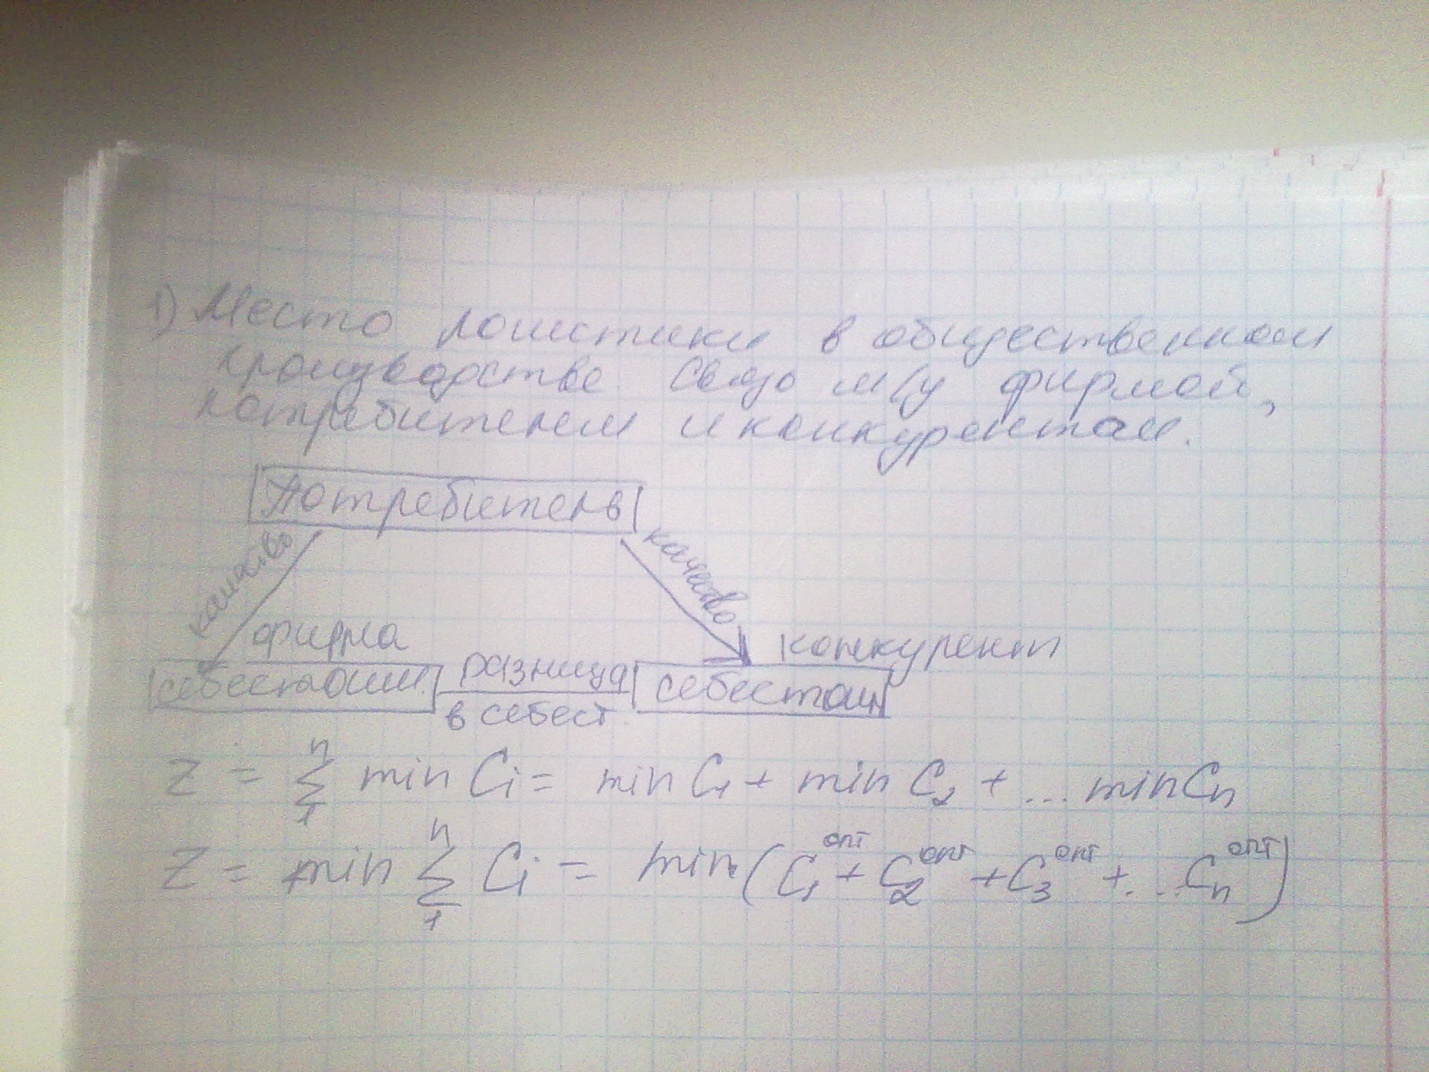 1) Место логистики в общественном
производстве. Связь м/у фирмой,
потребителем и конкурентом.
Потребитель
качество
качество
фирма
конкурент
себестоим.
разница
в себест.
себестоим
Z = n Σ 1 min Ci = min C1 + min C2 + ... min Cn
Z = min n Σ 1 Ci = min (C1 опт + C2 опт + C3 опт + ... Cn опт)